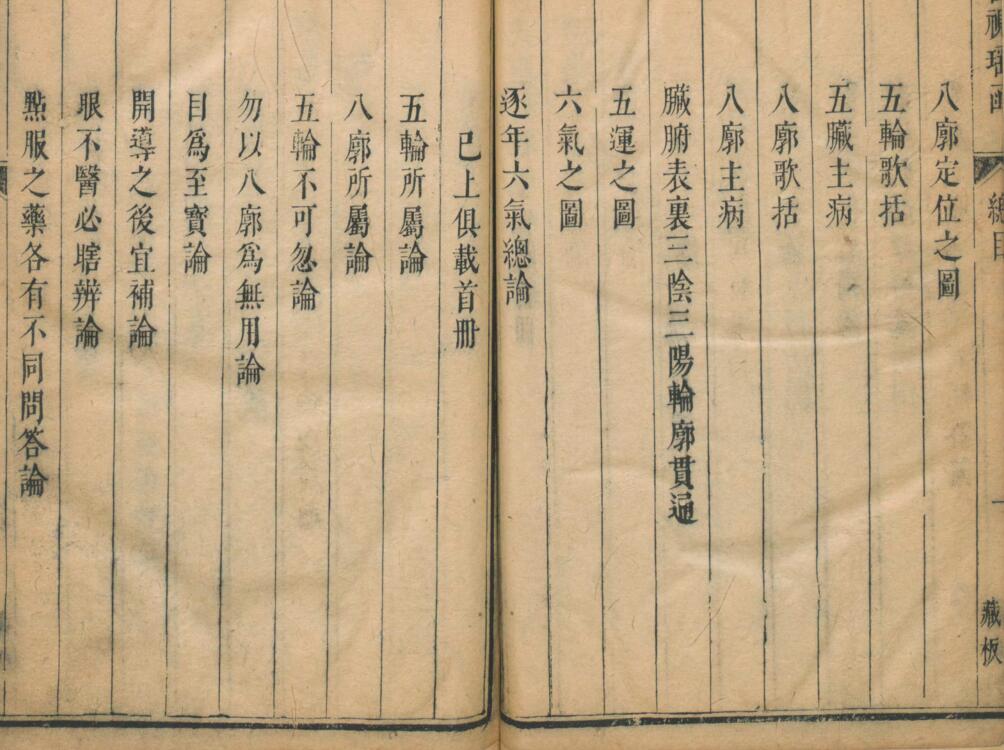 總目
藏板
八廓定位之圖
五輪歌括
五臟主病
八廓歌括
八廓主病
臟腑表裏三陰三陽輪廓貫通
五運之圖
六氣之圖
逐年六氣總論
已上俱載首冊
五輪所屬論
八廓所屬論
五輪不可忽論
勿以八廓爲無用論
目爲至寳論
開導之後宜補論
眼不醫必瞎辨論
點服之藥各有不同問答論